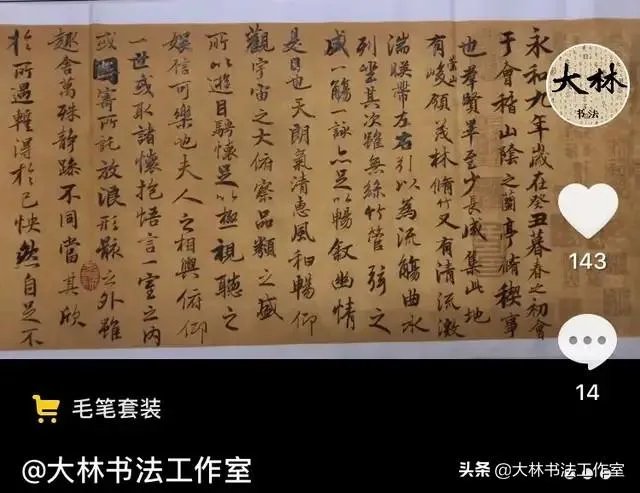 永和九年歲在癸丑暮春之初會
于會稽山陰之蘭亭脩稧事
也羣賢畢至少長咸集此地
有崇山峻領茂林脩竹又有清流激
湍暎帶左右引以為流觴曲水
列坐其次雖無絲竹管弦之
盛一觴一詠亦足以暢叙幽情
是日也天朗氣清惠風和暢仰
觀宇宙之大俯察品類之盛
所以遊目騁懷足以極視聽之
娛信可樂也夫人之相與俯仰
一世或取諸懷抱悟言一室之內
或因寄所託放浪形骸之外雖
趣舍萬殊靜躁不同當其欣
於所遇輒得於己怏然自足不
大林
书法
143
14
毛笔套装
@大林书法工作室
头条 @大林书法工作室